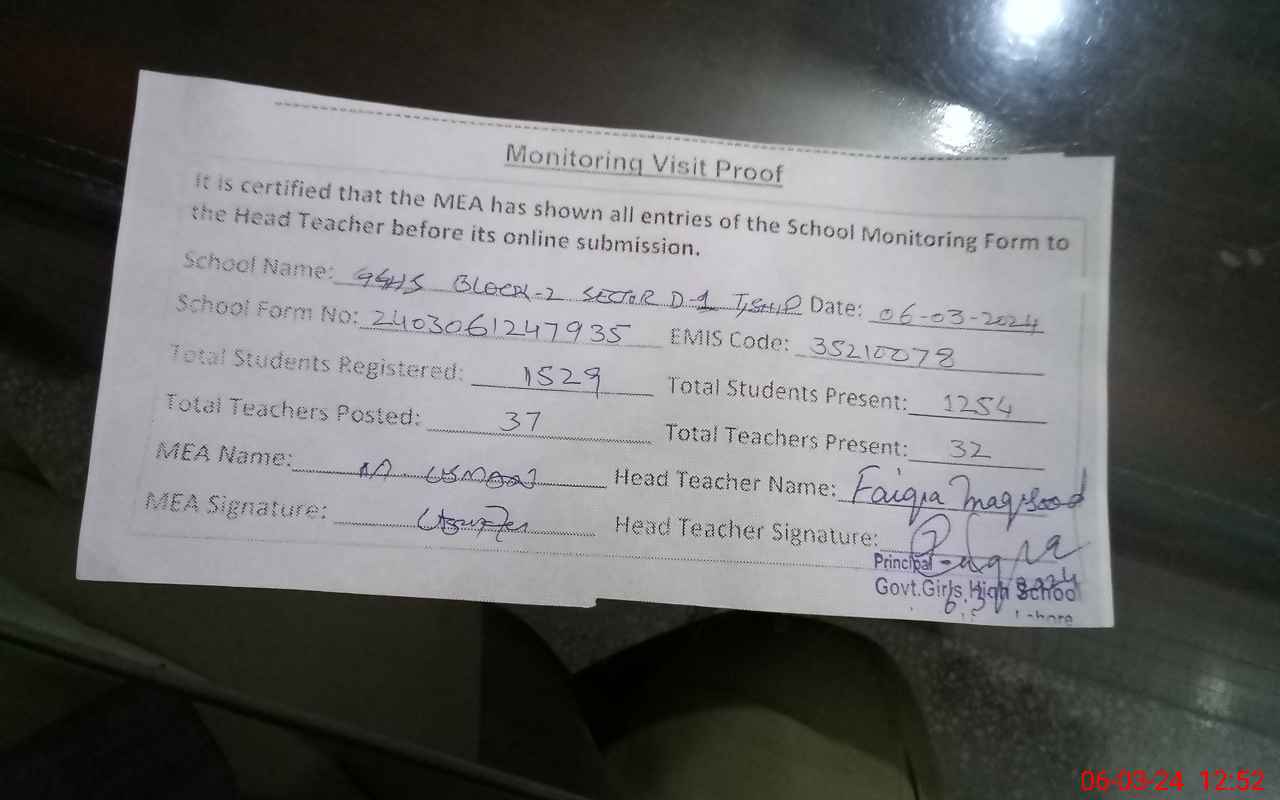 Monitoring Visit Proof
It is certified that the MEA has shown all entries of the School Monitoring Form to
the Head Teacher before its online submission.
School Name: GGHS BLOCK-2 SECTOR D-1 T,SHIP Date: 06-03-2024
School Form No: 2403061247935 EMIS Code: 35210078
Total Students Registered: 1529 Total Students Present: 1254
Total Teachers Posted: 37 Total Teachers Present: 32
MEA Name: M USMAN Head Teacher Name: Faiqra Maqsood
MEA Signature: Head Teacher Signature:
Principal
Govt.Girls High School
06-03-24 12:52